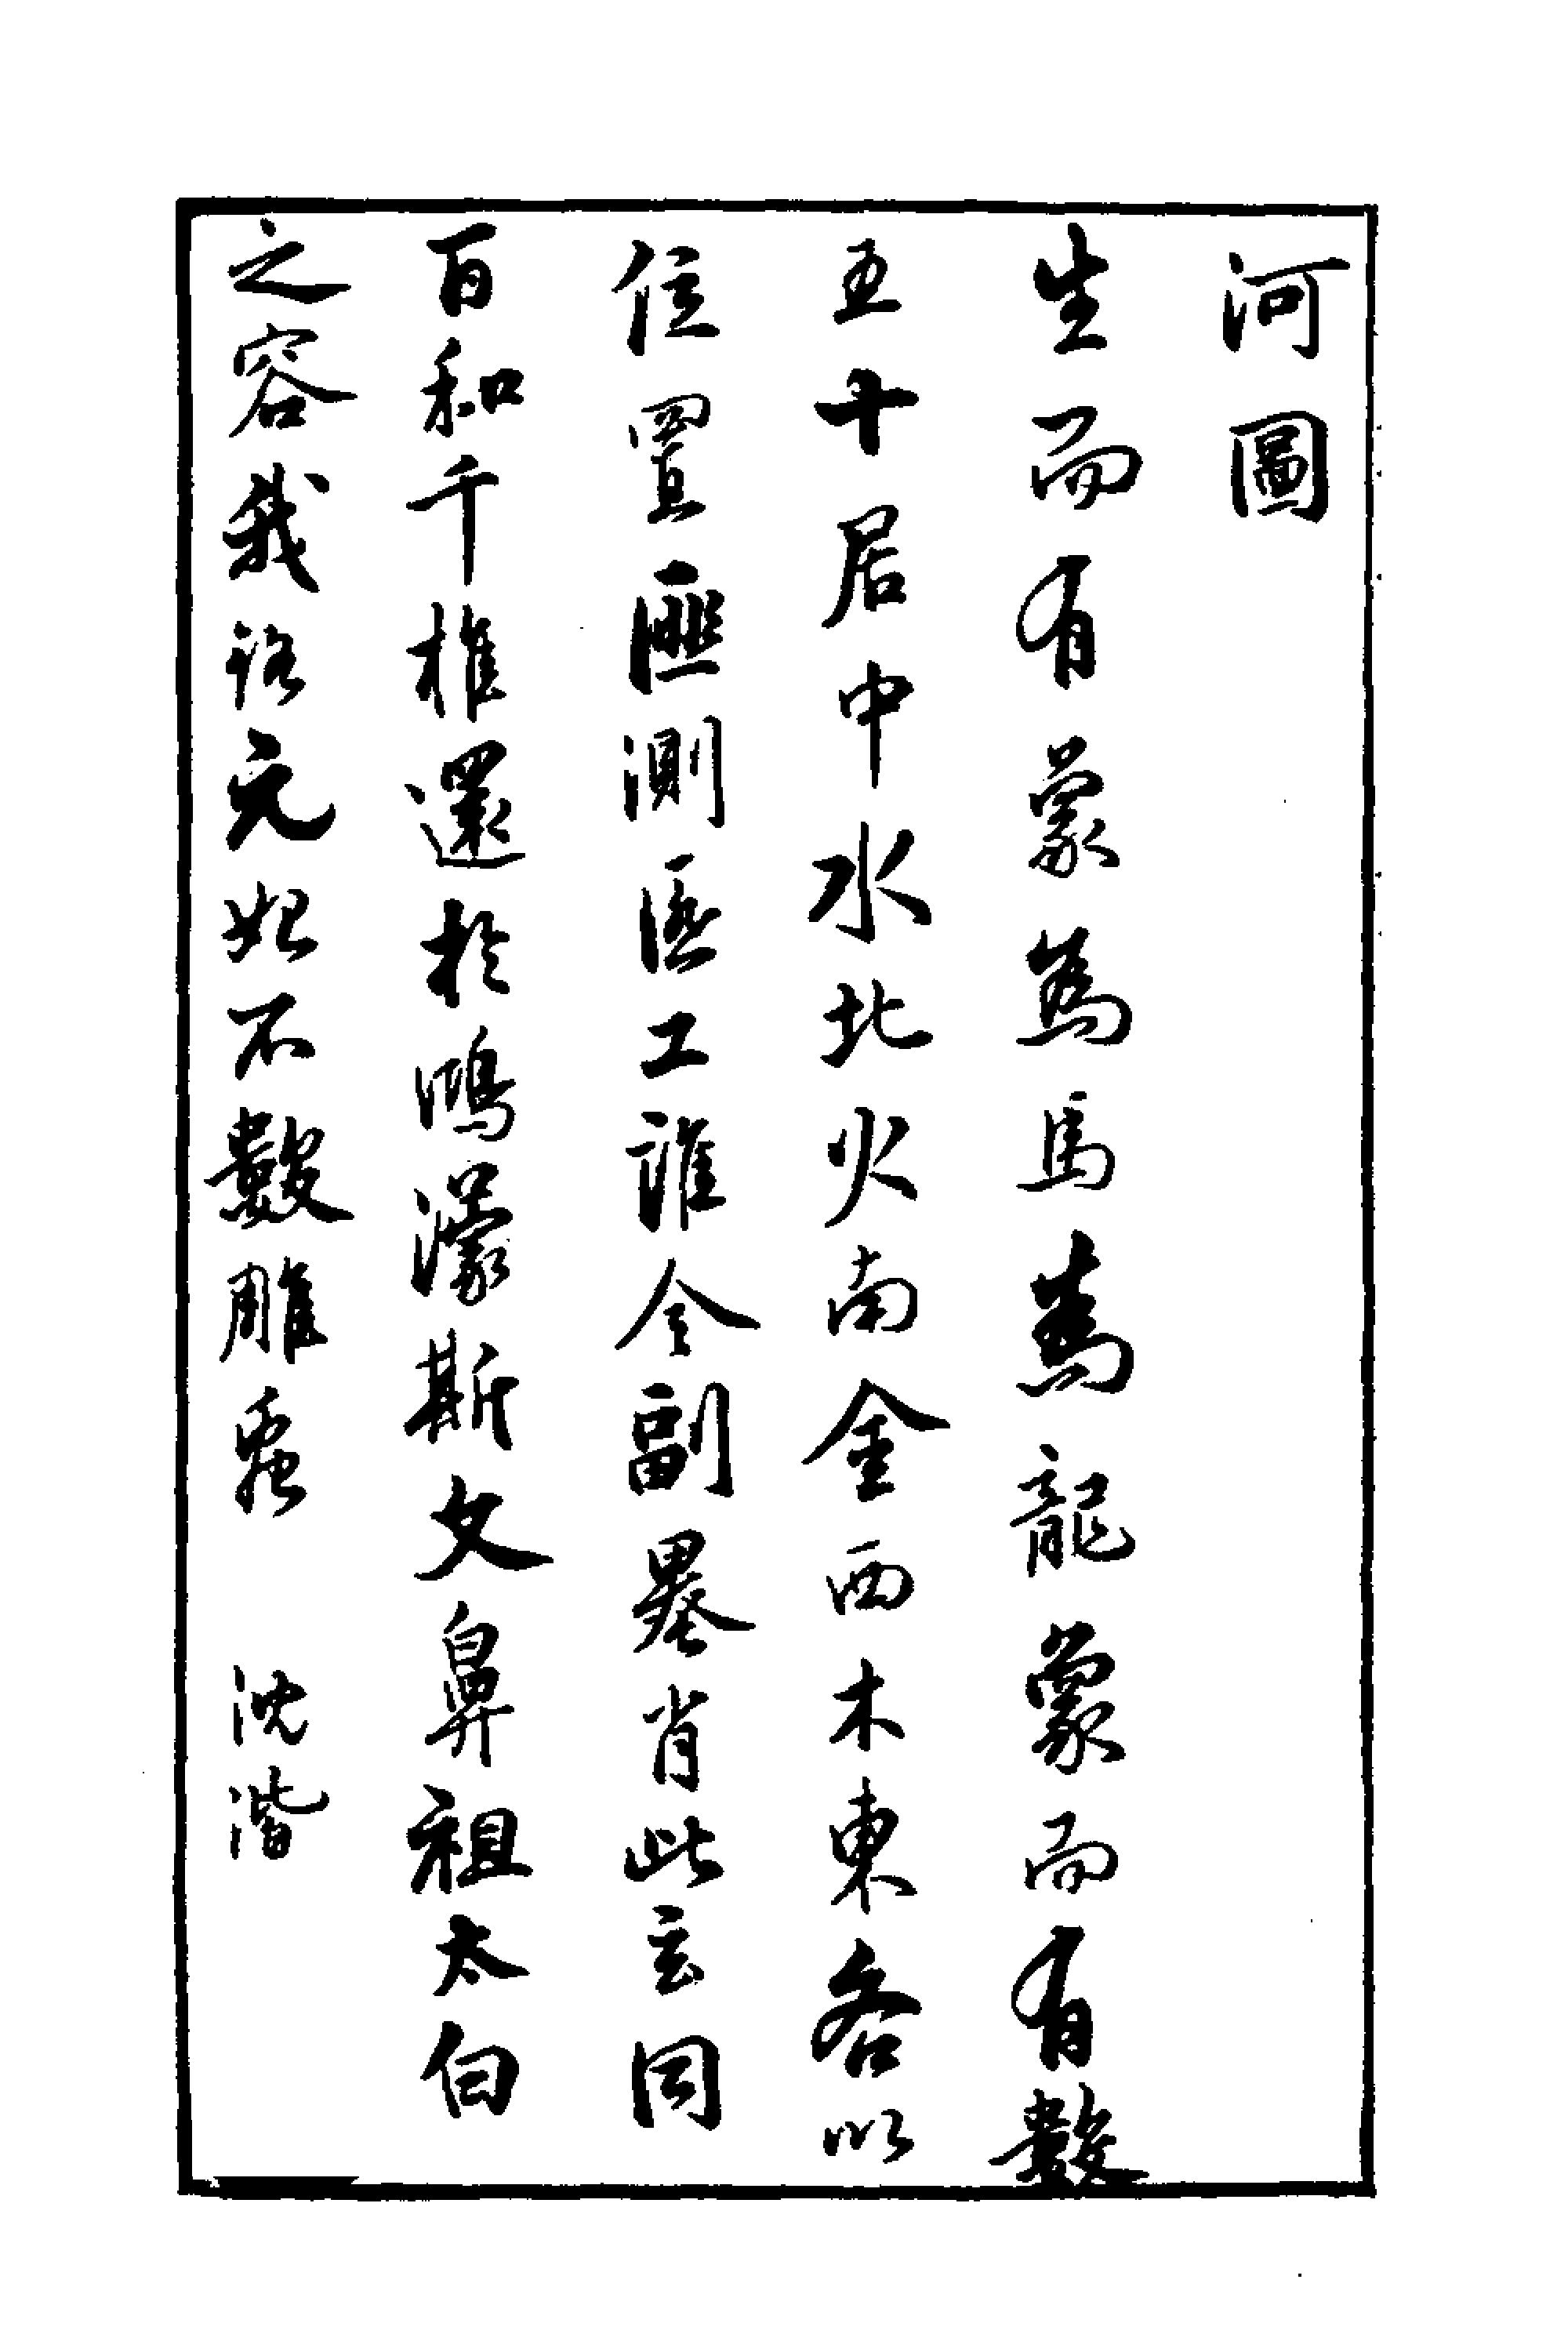 河圖
生而有象為馬為龍象而有數
五十居中水北火南金西木東各以
位置匪測匪工誰令副墨肖此玄同
百和千椎還於鴻濛斯文鼻祖太白
之容我元妃不數雕蟲 沈